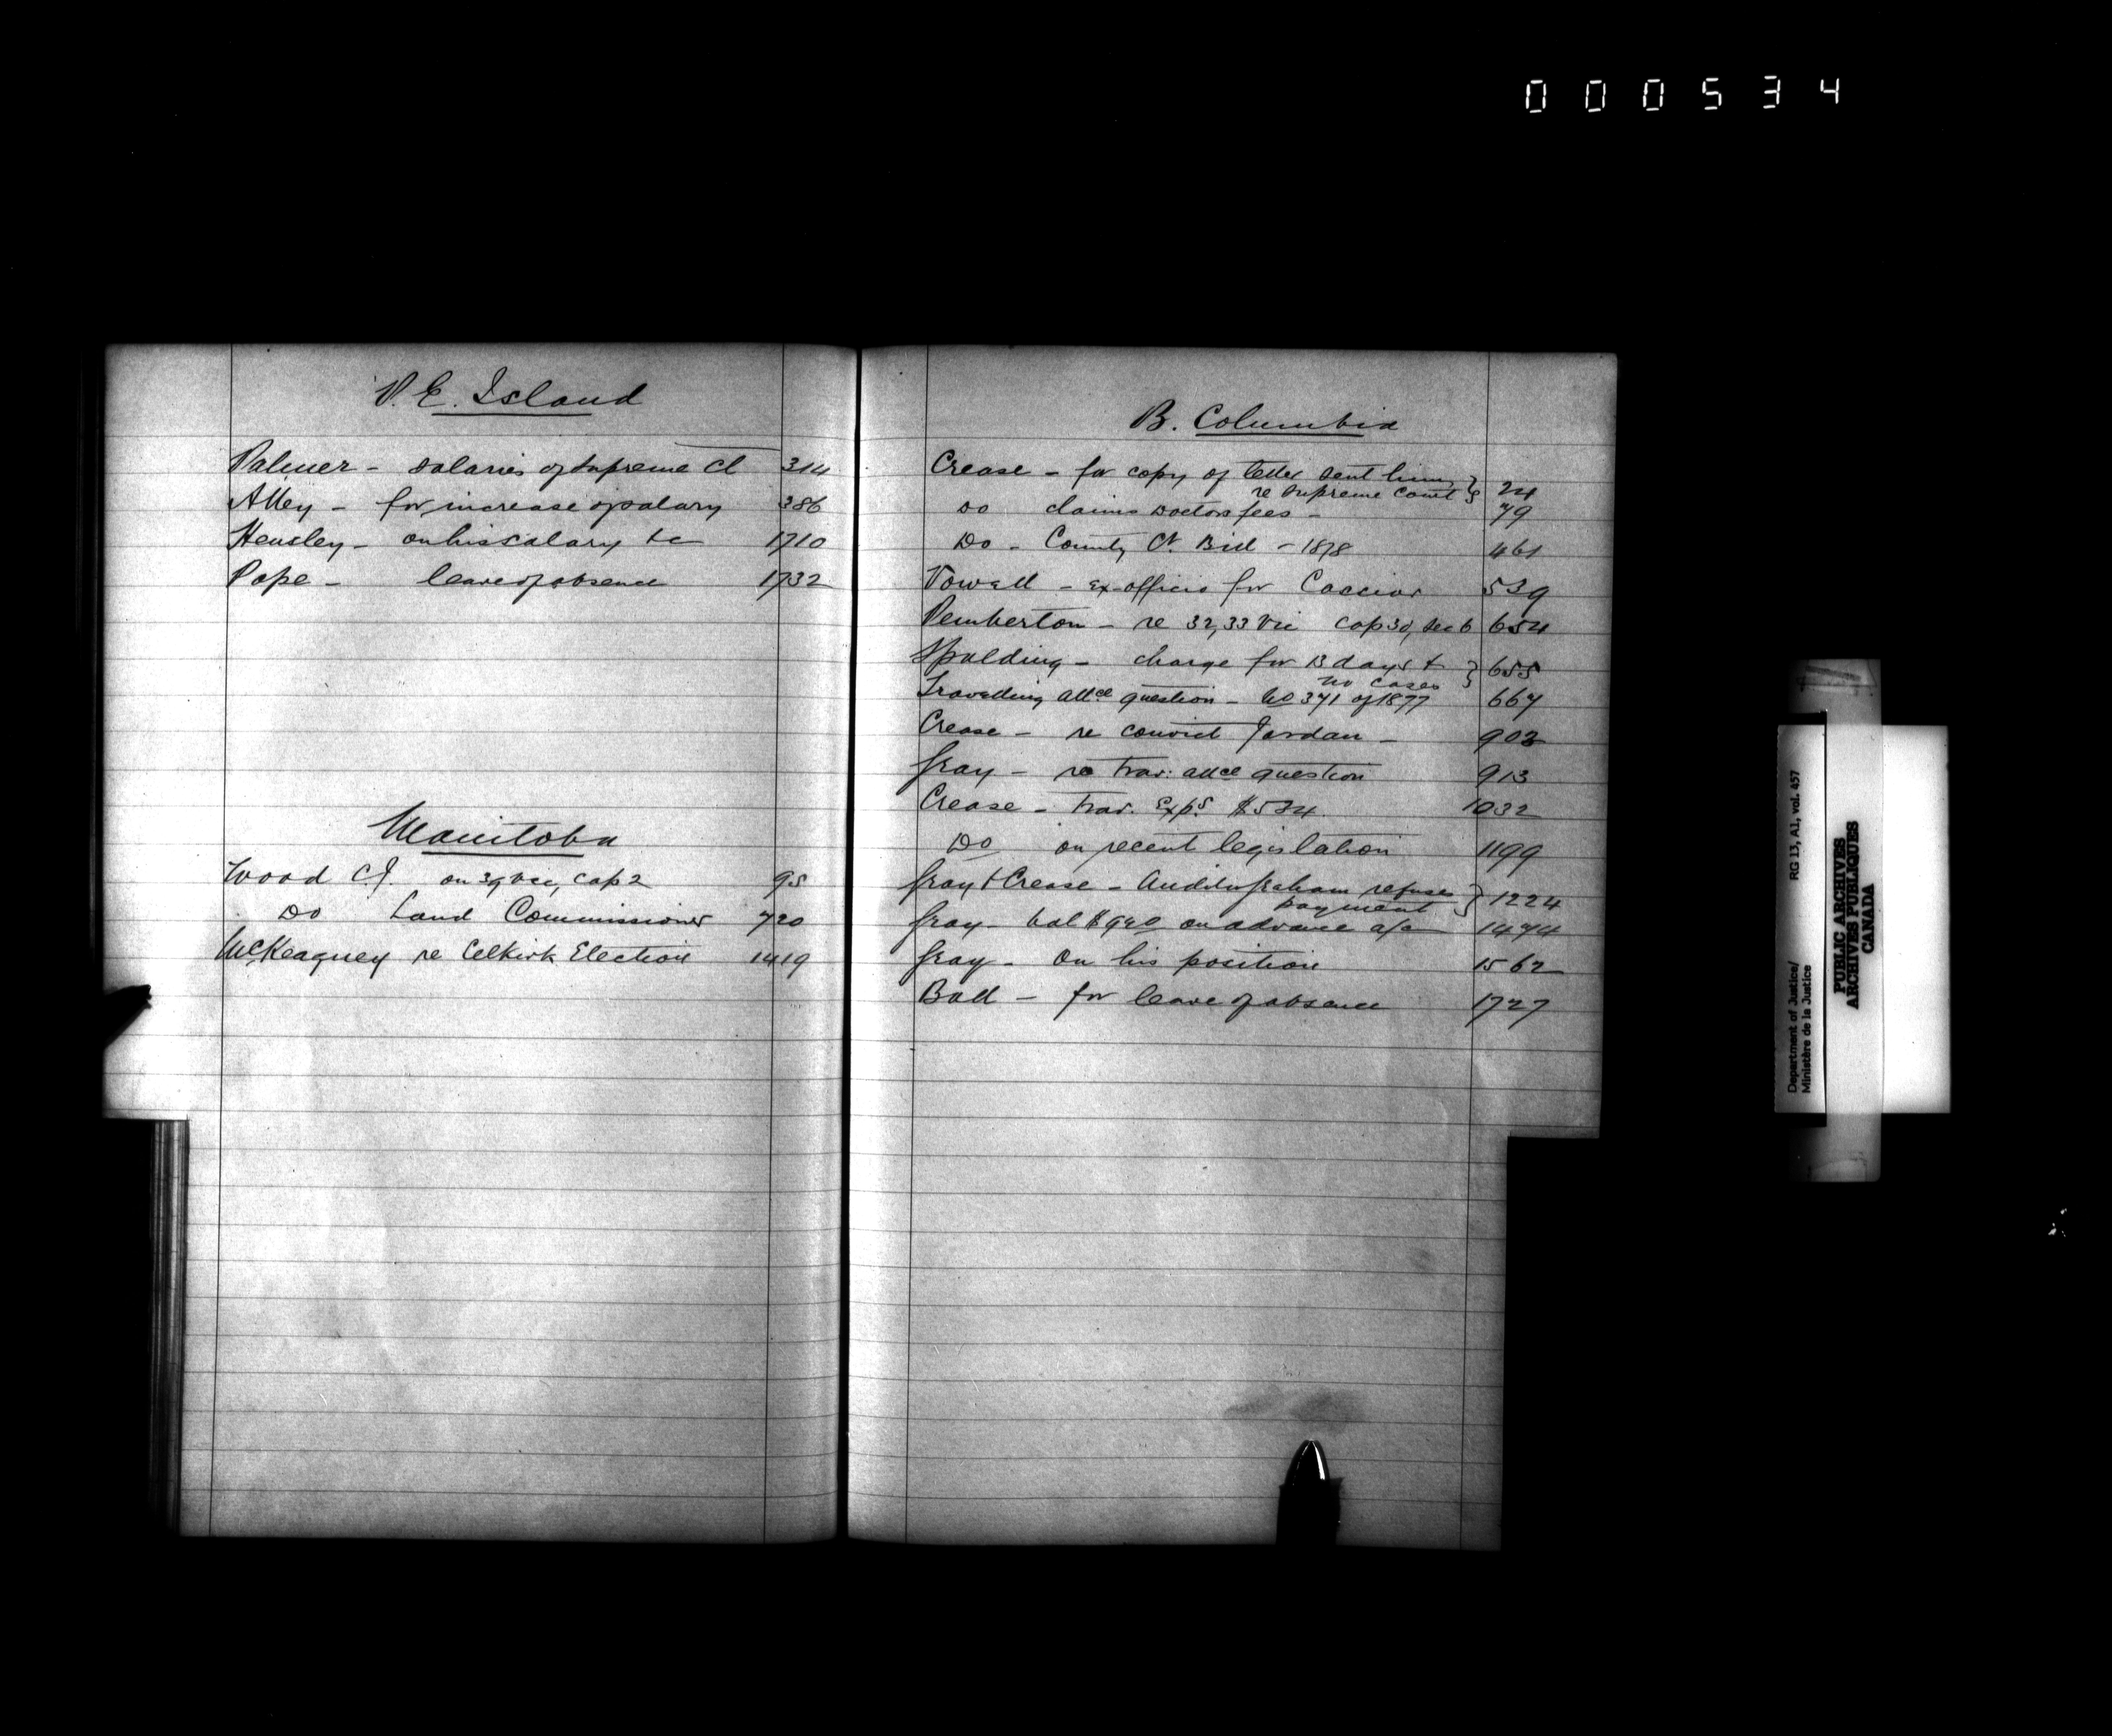 000534
P. E. Island
Palmer - salaries of Supreme Ct 314
Alley - for increase of salary 386
Hensley - on his salary &c 1710
Pope - leave of absence 1732
Manitoba
Wood C.J. on 39 Vic, cap 2 95
Do Land Commissioner 720
McKeagney re Selkirk Election 1419
B. Columbia
Crease - for copy of letter sent him
re Supreme Court } 24
Do claims Doctors fees - 79
Do - County Ct. Bill - 1878 461
Vowell - ex-officio for Cassiar 539
Pemberton - re 32,33 Vic cap 30, sec 6 654
Spalding - charge for 13 days &
no cases } 655
Travelling allce question - No 371 of 1877 667
Crease - re convict Jordan - 903
Gray - re trav: allce question 913
Crease - trav. Exps. $534 1032
Do on recent legislation 1199
Gray & Crease - Auditor Graham refuses
payment } 1224
Gray - bal $940 on advance a/c 1474
Gray - On his position 1562
Ball - for leave of absence 1727
Department of Justice/
Ministère de la Justice
RG 13, A1, vol. 457
PUBLIC ARCHIVES
ARCHIVES PUBLIQUES
CANADA